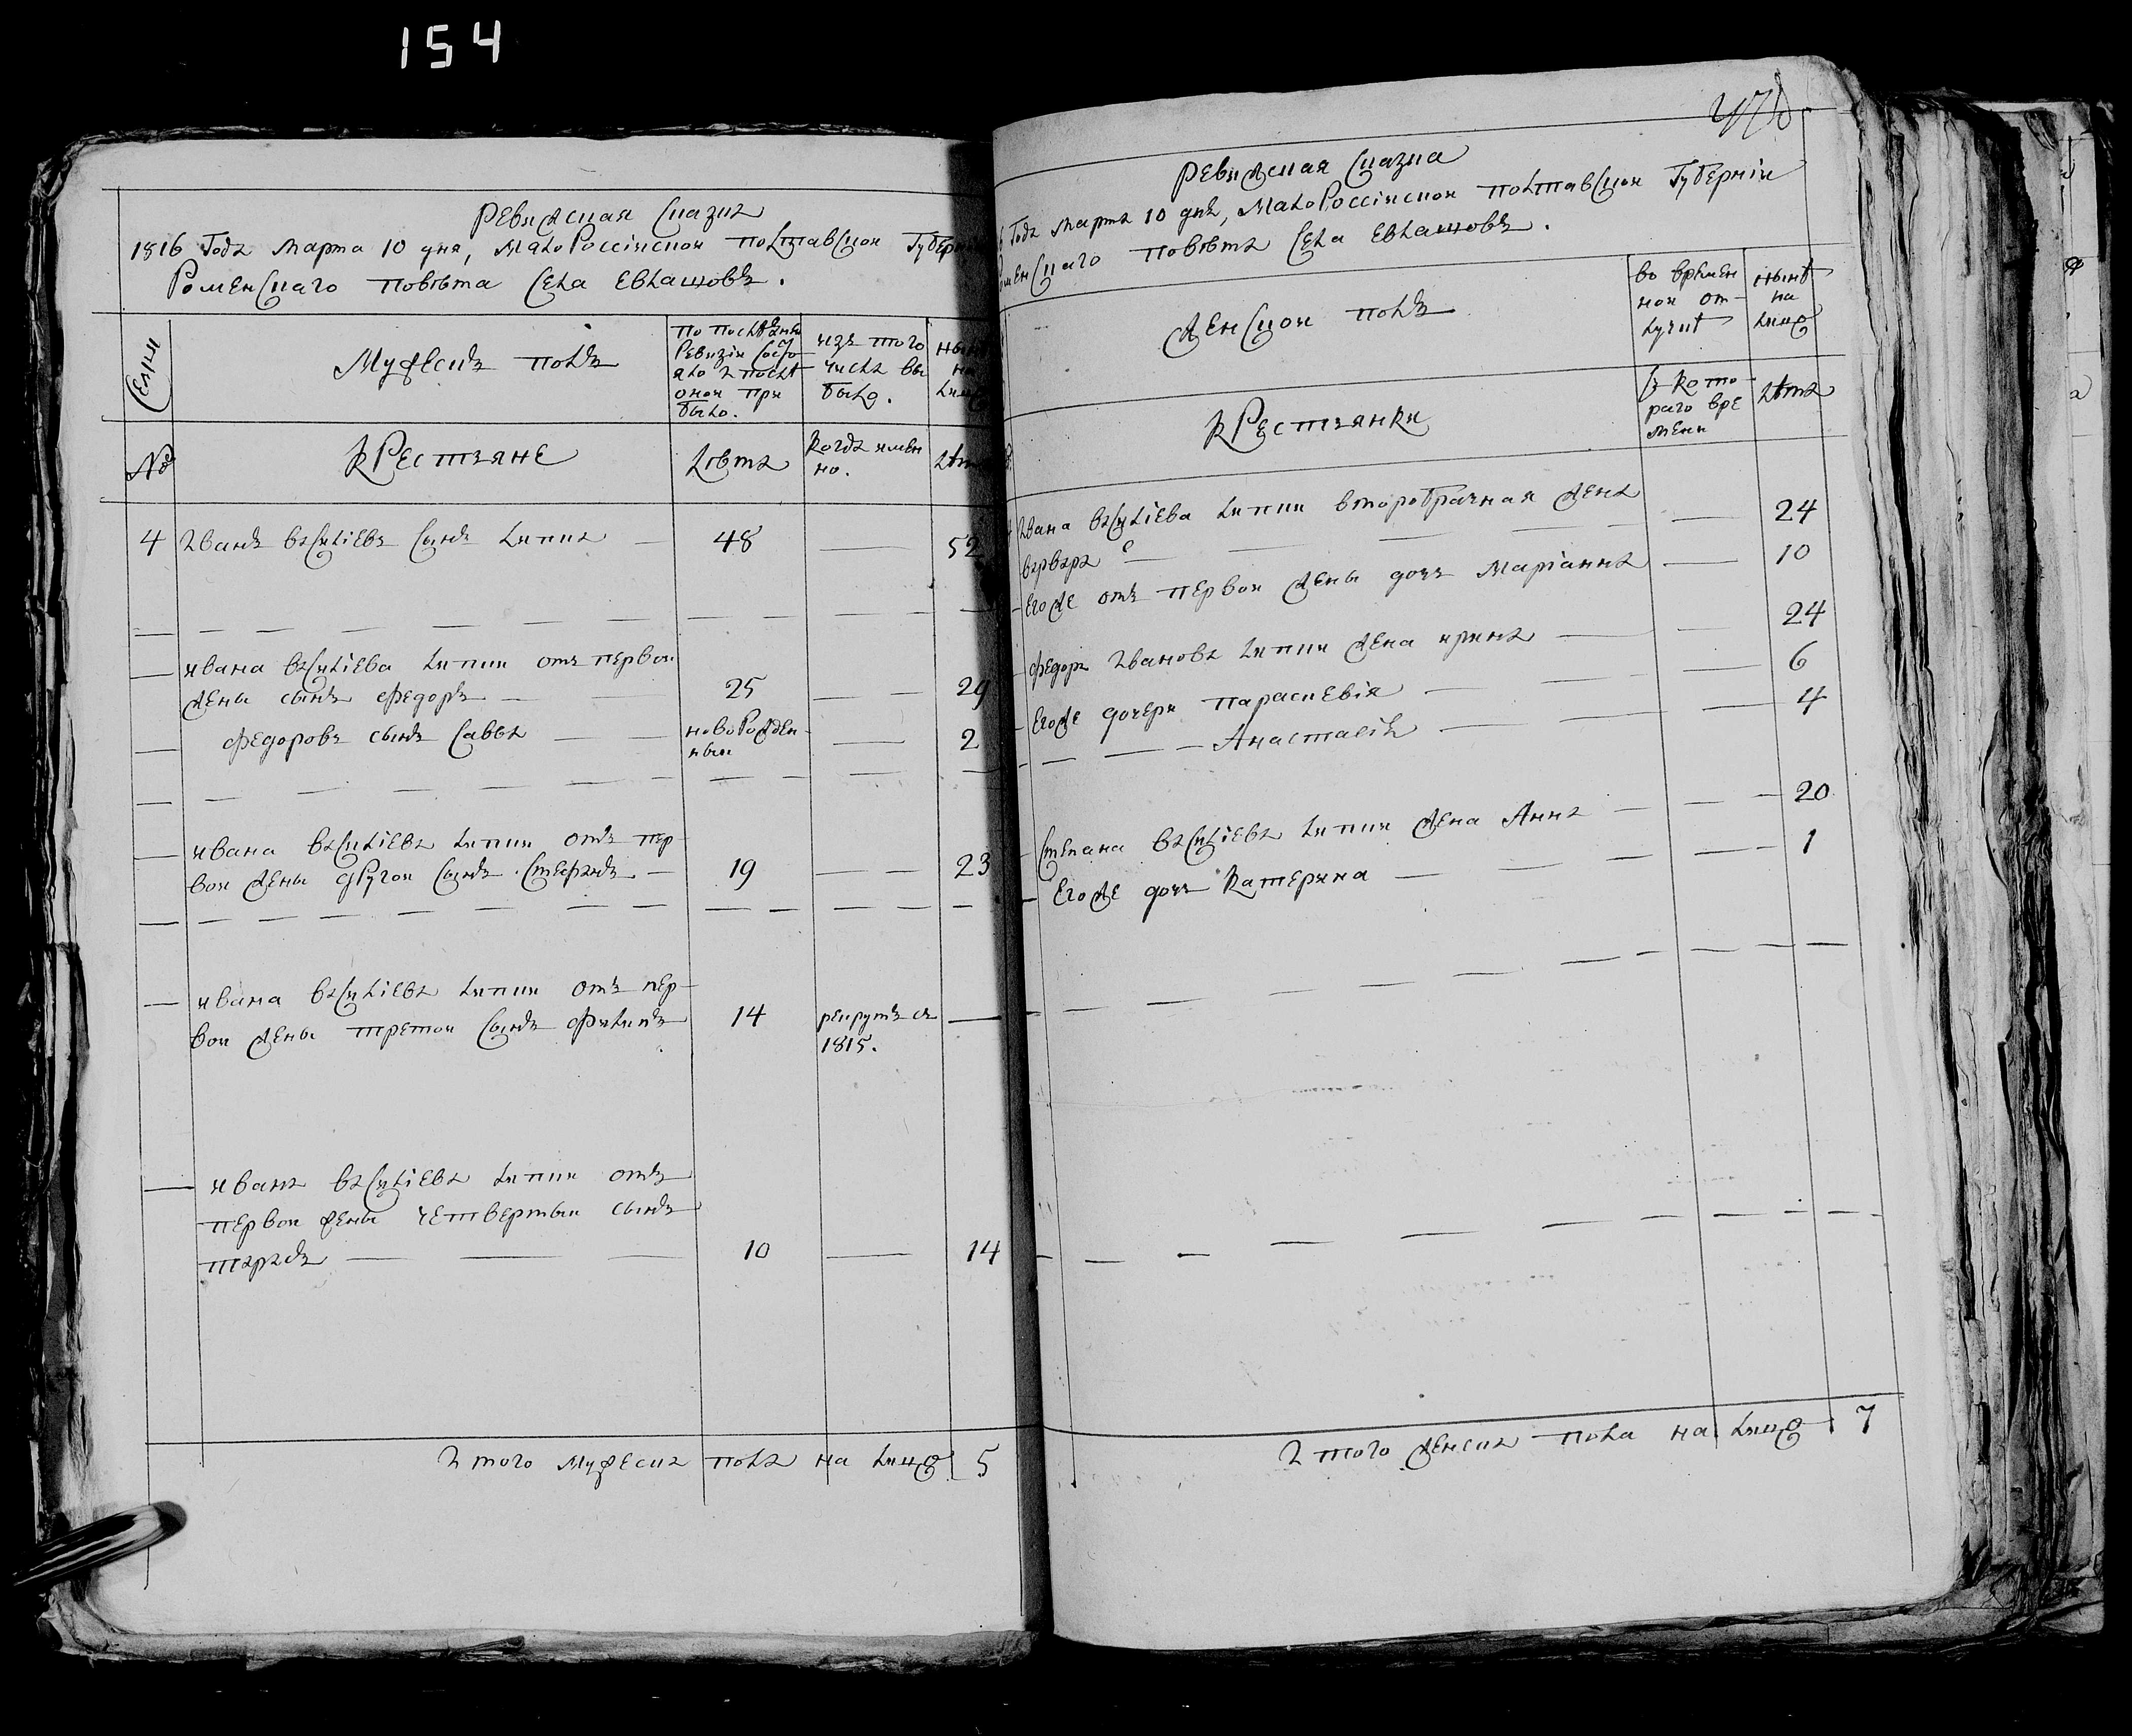 154
Ревизская сказка
1816 года марта 10 дня, Малороссийской Полтавской Губерн
Роменскаго повѣта села Евлашовъ.
Семьи
Мужескъ полъ
По последней
ревизіи состо
яло и послѣ
оной при
было.
изъ того
числа вы
было.
ны
на
лицо
№
Крестьяне
Лѣта
когда имен
но.
Лѣта
4 Иванъ Василіевъ сынъ Липка 48 52
Ивана Василіева Липки отъ первои
жены сынъ Федоръ 25 29
Федоровъ сынъ Савва новорожден
ныи 2
Ивана Василіева Липки отъ пер
вои жены другои сынъ Стефанъ 19 23
Ивана Василіева Липки отъ пер
вои жены третои сынъ Филипъ 14 рекрутъ съ
1815.
Ивана Василіева Липки отъ
первои жены четвертыи сынъ
Тарасъ 10 14
Итого мужеска пола на лицо 5
Ревизская сказка
6 года марта 10 дня, Малороссійскои Полтавскои Губерніи
менскаго повѣта села Евлашовъ.
Женскои полъ
во времен
нои от
лучкѣ
нынѣ
на
лицо
Крестьянки
съ кото
раго вре
мени
Лѣта
Ивана Василіева Липки второбрачная жена
Варвара 24
Егоже отъ первои жены дочь Маріанна 10
Федора Иванова Липки жена Ирина 24
Егоже дочери Параскевія 6
Анастасія 4
Степана Василіева Липки жена Анна 20
Егоже дочь Катерина 1
Итого женска пола на лицо 7